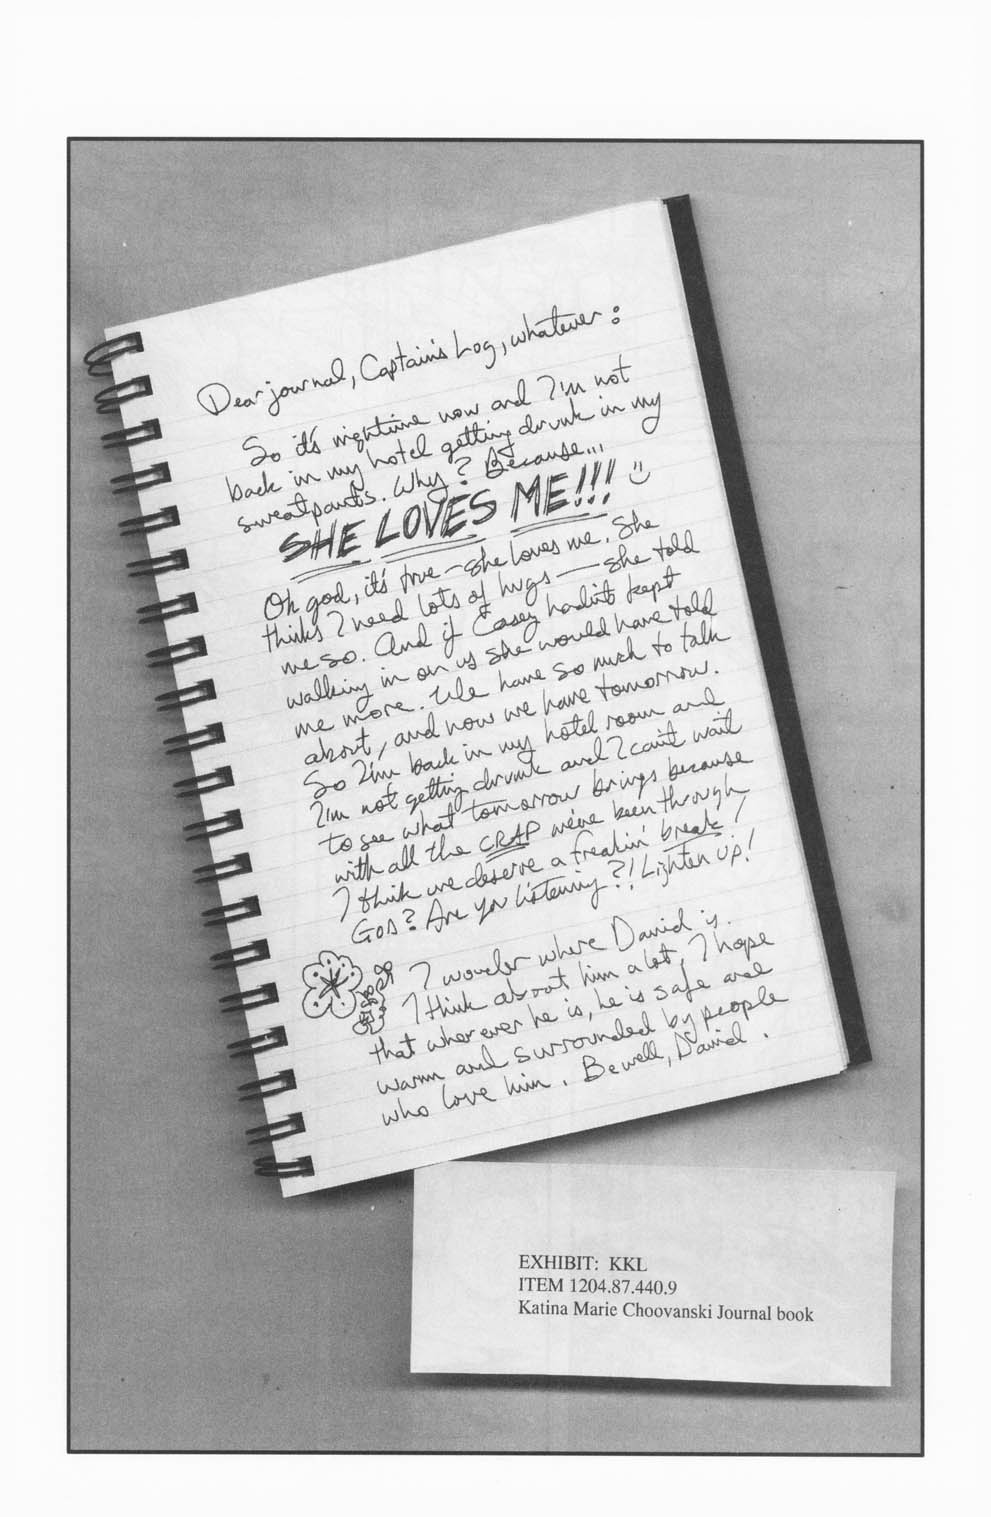 Dear journal, Captain's Log, whatever:
So it's nightime now and I'm not
back in my hotel getting drunk in my
sweatpants. Why? Because...
SHE LOVES ME!!!
Oh god, it's true – she loves me. She
thinks I need lots of hugs — she told
me so. And if Casey hadn't kept
walking in on us she would have told
me more. We have so much to talk
about, and now we have tomorrow.
So I'm back in my hotel room and
I'm not getting drunk and I can't wait
to see what tomorrow brings because
with all the CRAP we've been through
I think we deserve a freakin' break!
GOD? Are you listening?! Lighten up!
I wonder where David is.
I think about him a lot, I hope
that wherever he is, he is safe and
warm and surrounded by people
who love him. Be well, David.
EXHIBIT: KKL
ITEM 1204.87.440.9
Katina Marie Choovanski Journal book